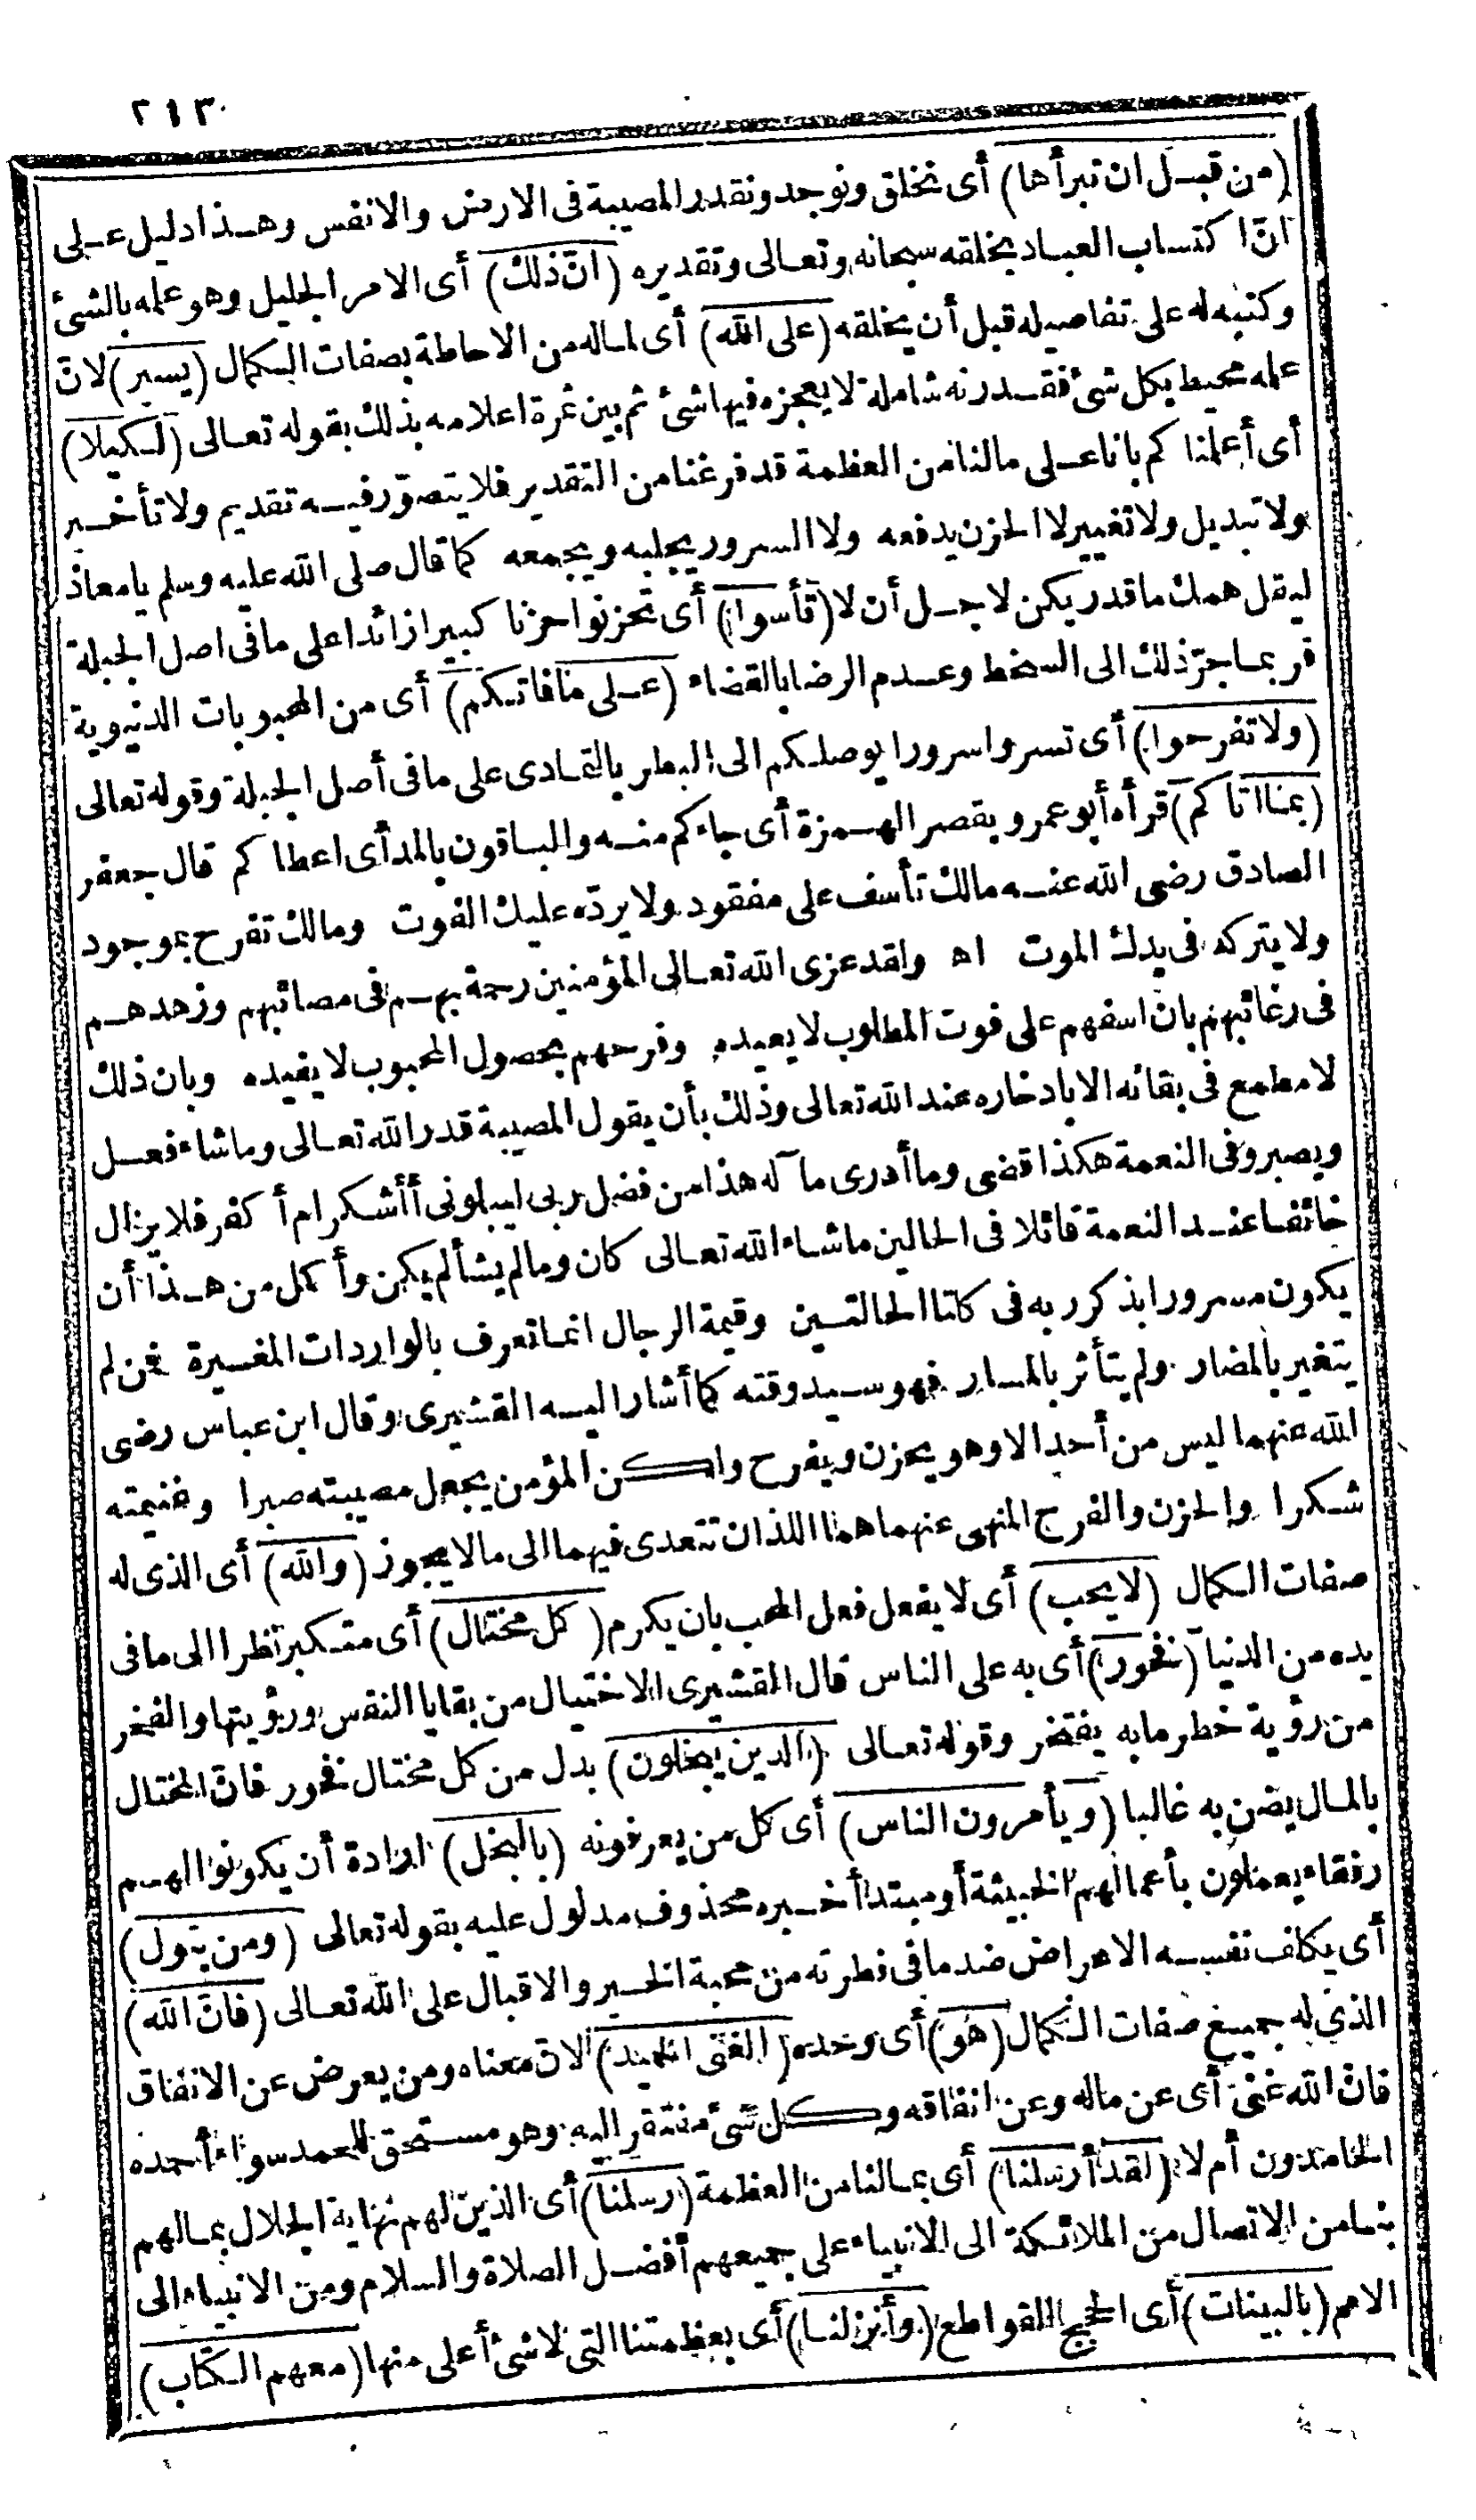 ٢١٣
(من قبل ان نبرأها) أى نخلق ونوجد ونقدر المصيبة فى الارض والانفس وهذا دليل على
انّ اكتساب العباد بخلقه سبحانه وتعالى وتقديره (انّ ذلك) أى الامر الجليل وهو علمه بالشئ
وكتبه له على تفاصيله قبل أن يخلقه (على الله) أى لماله من الاحاطة بصفات الكمال (يسير) لانّ
علمه محيط بكل شئ فقدرته شاملة لا يعجزه فيها شئ ثم بين ثمرة اعلامه بذلك بقوله تعالى (لكيلا)
أى أعلمنا كم بانا على مالنا من العظمة قد فرغنا من التقدير فلا يتصوّر فيه تقديم ولا تأخير
ولا تبديل ولا تغيير لا الحزن يدفعه ولا السرور يجلبه ويجمعه كما قال صلى الله عليه وسلم يا معاذ
ليقل همك ما قدر يكن لاجل أن لا (تأسوا) أى تحزنوا حزنا كبيرا زائدا على ما فى اصل الجبلة
فربما جرّ ذلك الى السخط وعدم الرضا بالقضاء (على ما فاتكم) أى من المحبوبات الدنيوية
(ولا تفرحوا) أى تسروا سرورا يوصلكم الى البطر بالتمادى على ما فى أصل الجبلة وقوله تعالى
(بما اتاكم) قرأه أبو عمرو بقصر الهمزة أى جاءكم منه والباقون بالمد أى اعطاكم قال جعفر
الصادق رضى الله عنه مالك تأسف على مفقود ولا يردّه عليك الفوت ومالك تفرح بموجود
ولا يتركه فى يدك الموت اه ولقد عزى الله تعالى المؤمنين رحمة بهم فى مصائبهم وزهدهم
فى رغائبهم بان اسفهم على فوت المطلوب لا يعيده وفرحهم بحصول المحبوب لا يفيده وبان ذلك
لا مطمع فى بقائه الا بادخاره عند الله تعالى وذلك بأن يقول المصيبة قدر الله تعالى وما شاء فعل
ويصبر وفى النعمة هكذا قضى وما أدرى ما آله هذا من فضل ربى ليبلونى أأشكر ام أكفر فلا يزال
خائفا عند النعمة قائلا فى الحالين ما شاء الله تعالى كان وما لم يشأ لم يكن وأكمل من هذا أن
يكون مسرورا بذكر ربه فى كلتا الحالتين وقيمة الرجال انما تعرف بالواردات المغيرة فمن لم
يتغير بالمضار ولم يتأثر بالمسار فهو سيد وقته كما أشار اليه القشيرى وقال ابن عباس رضى
الله عنهما ليس من أحد الا وهو يحزن ويفرح ولكن المؤمن يجعل مصيبته صبرا وغنيمته
شكرا والحزن والفرح المنهى عنهما هما اللذان تتعدى فيهما الى ما لا يجوز (والله) أى الذى له
صفات الكمال (لا يحب) أى لا يفعل فعل المحب بان يكرم (كل مختال) أى متكبر نظرا الى ما فى
يده من الدنيا (فخور) أى به على الناس قال القشيرى الاختيال من بقايا النفس ورؤيتها والفخر
من رؤية خطر ما به يفتخر وقوله تعالى (الدين يبخلون) بدل من كل مختال فخور فانّ المختال
بالمال يضن به غالبا (ويأمرون الناس) أى كل من يعرفونه (بالبخل) ارادة أن يكونوا لهم
رفقاء يعملون بأعمالهم الخبيثة أو مبتدأ خبره محذوف مدلول عليه بقوله تعالى (ومن يتول)
أى يكلف نفسه الاعراض ضد ما فى فطرته من محبة الخير والاقبال على الله تعالى (فانّ الله)
الذى له جميع صفات الكمال (هو) أى وحده (الغنى الحميد) لان معناه ومن يعرض عن الانفاق
فان الله غنى أى عن ماله وعن انفاقه وكل شئ مفتقر اليه وهو مستحق للحمد سواء أحمده
الحامدون أم لا (لقد أرسلنا) أى بمالنا من العظمة (رسلنا) أى الذين لهم نهاية الجلال بمالهم
بنا من الاتصال من الملائكة الى الانبياء على جميعهم أفضل الصلاة والسلام ومن الانبياء الى
الامم (بالبينات) أى الحجج القواطع (وأنزلنا) أى بعظمتنا التى لا شئ أعلى منها (معهم الكتاب)